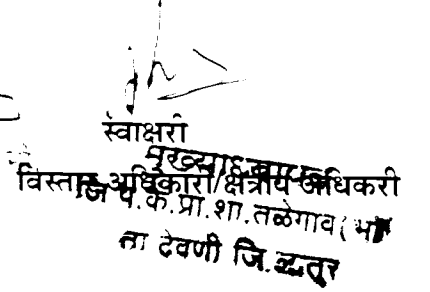 स्वाक्षरी
मुख्याध्यापक
विस्तार अधिकारी/क्षेत्रीय अधिकरी
जि प.के.प्रा.शा.तळेगाव(भो)
ता देवणी जि.लातूर